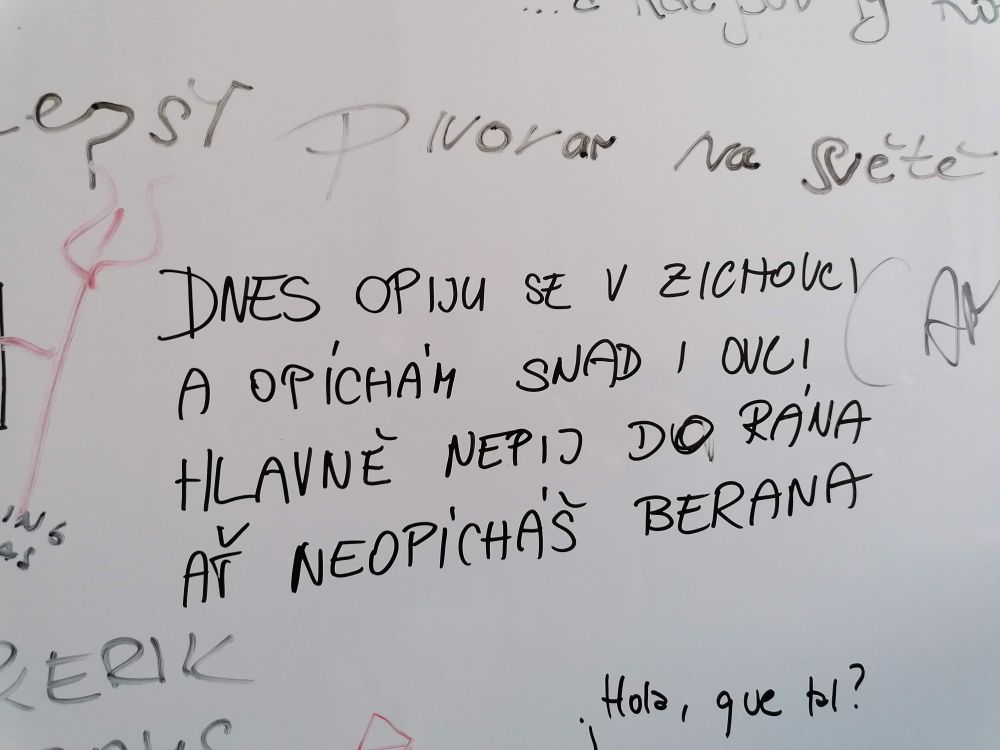 Pivovar na světě
DNES OPIJU SE V ZICHOVCI
A OPÍCHÁM SNAD I OVCI
HLAVNĚ NEPIJ DO RÁNA
AŤ NEOPÍCHÁŠ BERANA
ERIK
Hola, que tal?